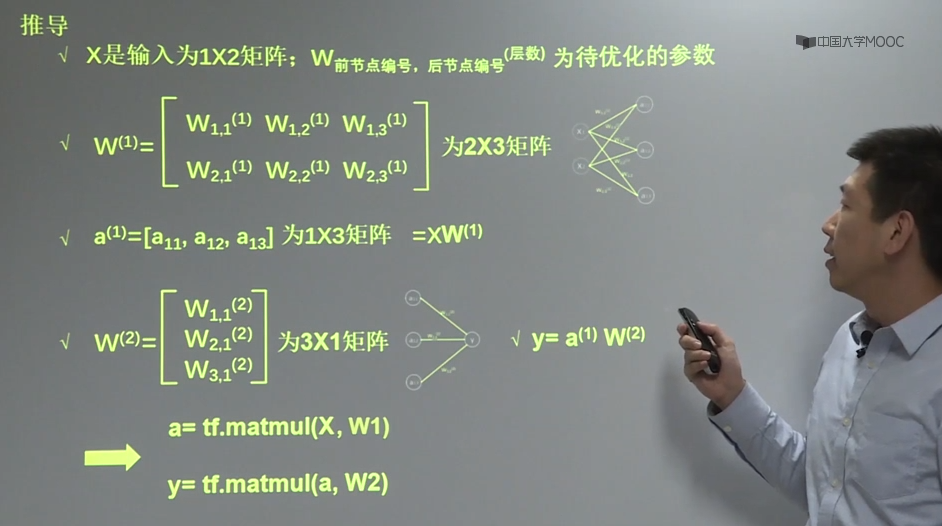 推导
中国大学MOOC
√ X是输入为1X2矩阵；W前节点编号，后节点编号(层数) 为待优化的参数
√ W(1)= [ W1,1(1) W1,2(1) W1,3(1)
W2,1(1) W2,2(1) W2,3(1) ] 为2X3矩阵
√ a(1)=[a11, a12, a13] 为1X3矩阵 =XW(1)
√ W(2)= [ W1,1(2)
W2,1(2)
W3,1(2) ] 为3X1矩阵
√ y= a(1) W(2)
a= tf.matmul(X, W1)
y= tf.matmul(a, W2)